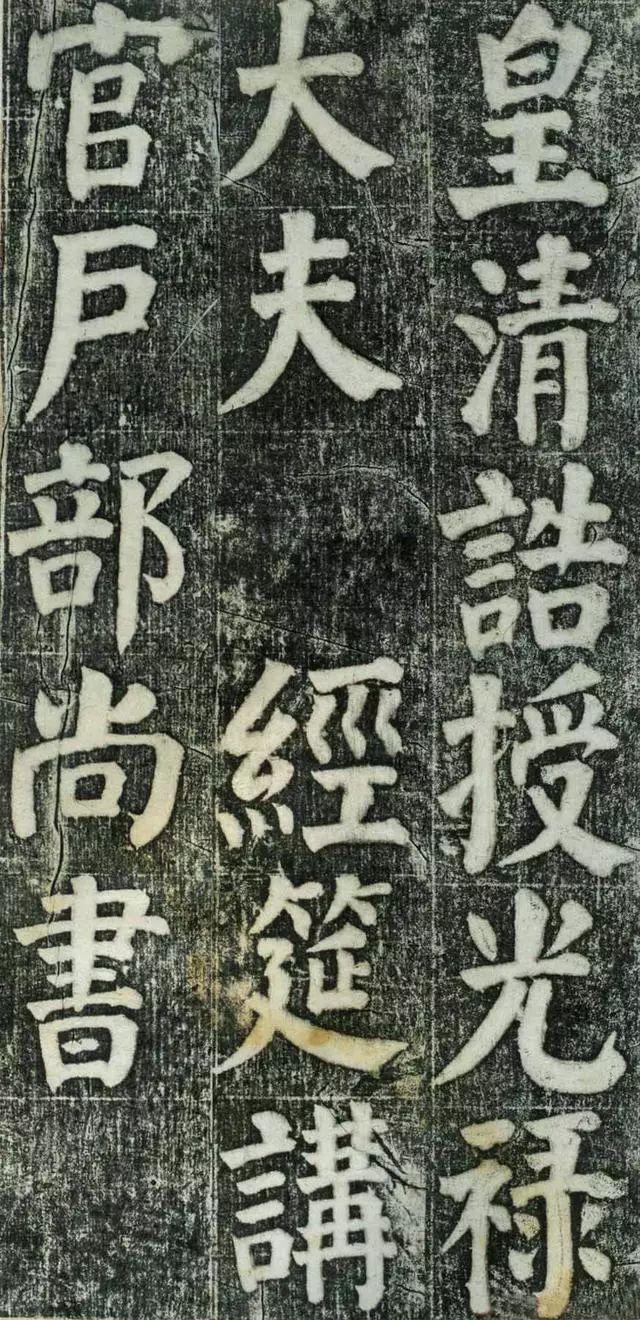 皇清誥授光禄
大夫 經筵講
官戶部尚書